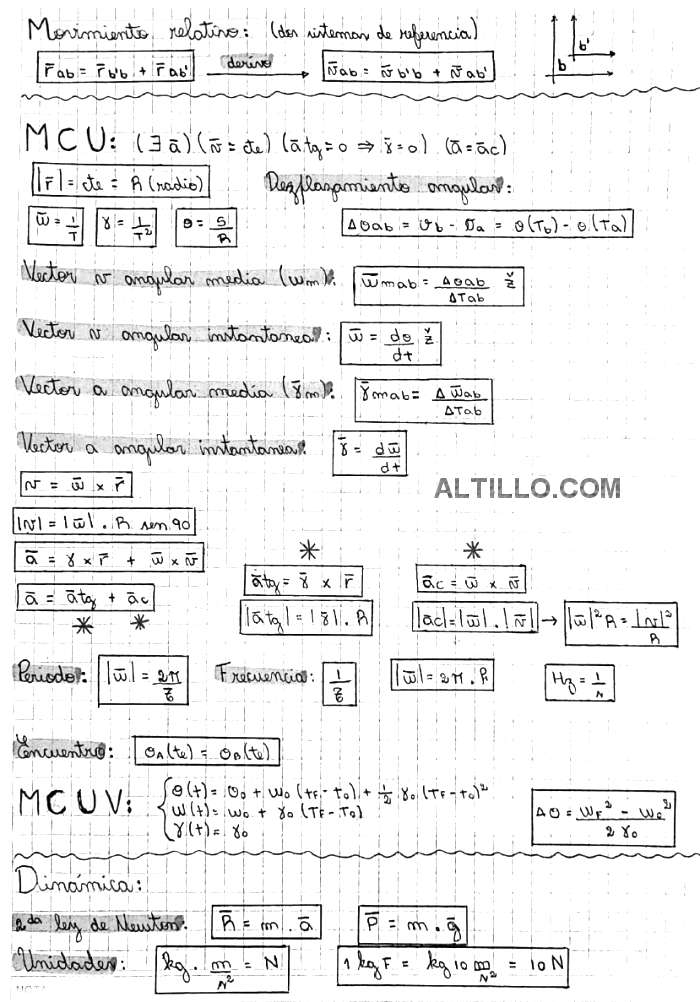 Movimiento relativo: (dos sistemas de referencia)
r̄ab = r̄b'b + r̄ab' derivo v̄ab = v̄b'b + v̄ab' b b'
MCU: (∃ā) (v̄ = cte) (ātg = 0 ⇒ γ̄ = 0) (ā = āc)
|r̄| = cte = R (radio) Dezplazamiento angular:
w̄ = 1/T γ = 1/T² θ = S/R Δθab = θb - θa = θ(Tb) - θ(Ta)
Vector v angular media (wm): w̄mab = Δθab/ΔTab ž
Vector v angular instantanea: w̄ = dθ/dt ž
Vector a angular media (γ̄m): γ̄mab = Δw̄ab/ΔTab
Vector a angular instantanea: γ̄ = dw̄/dt
v = w̄ x r̄
ALTILLO.COM
|v| = |w̄| . R sen 90
ā = γ x r̄ + w̄ x v̄ * ātg = γ̄ x r̄ * āc = w̄ x v̄
ā = ātg + āc |ātg| = |γ̄| . R |āc| = |w̄| . |v̄| → |w̄|² R = |v|²/R
* *
Periodo: |w̄| = 2π/ꞇ Frecuencia: 1/ꞇ |w̄| = 2π . f Hz = 1/s
Encuentro: θA(te) = θB(te)
MCUV: { θ(t) = θ0 + w0 (tF - t0) + 1/2 γ0 (TF - t0)²
w(t) = w0 + γ0 (TF - T0)
γ(t) = γ0
Δθ = wF² - w0²/2γ0
Dinámica:
2da ley de Newton: R̄ = m . ā P̄ = m . ḡ
Unidades: kg . m/s² = N 1 kgF = kg 10 m/s² = 10 N